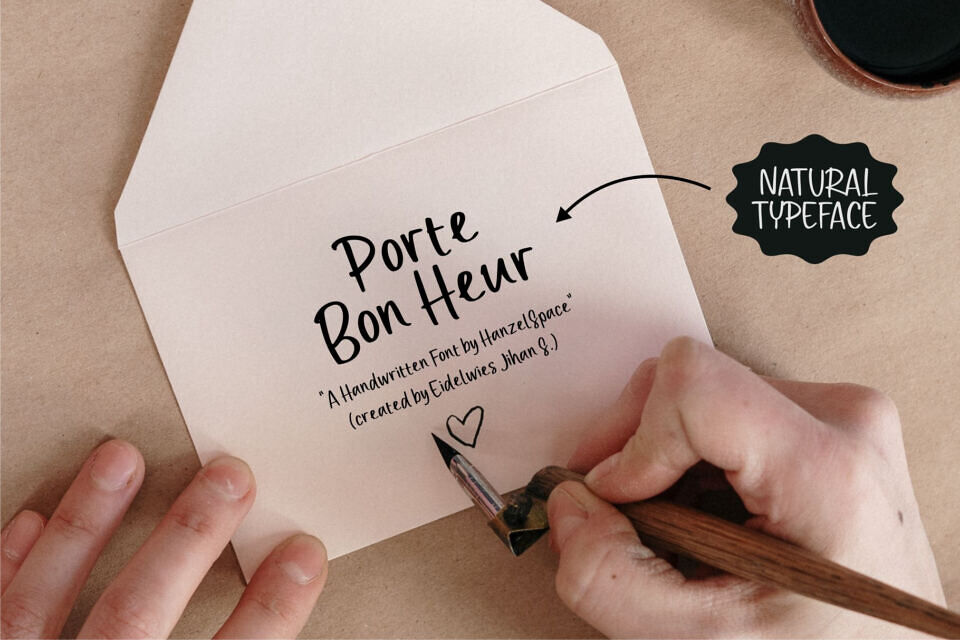 Porte
Bon Heur
"A Handwritten Font by HanzelSpace"
(created by Eidelwies Jihan S.)
NATURAL
TYPEFACE